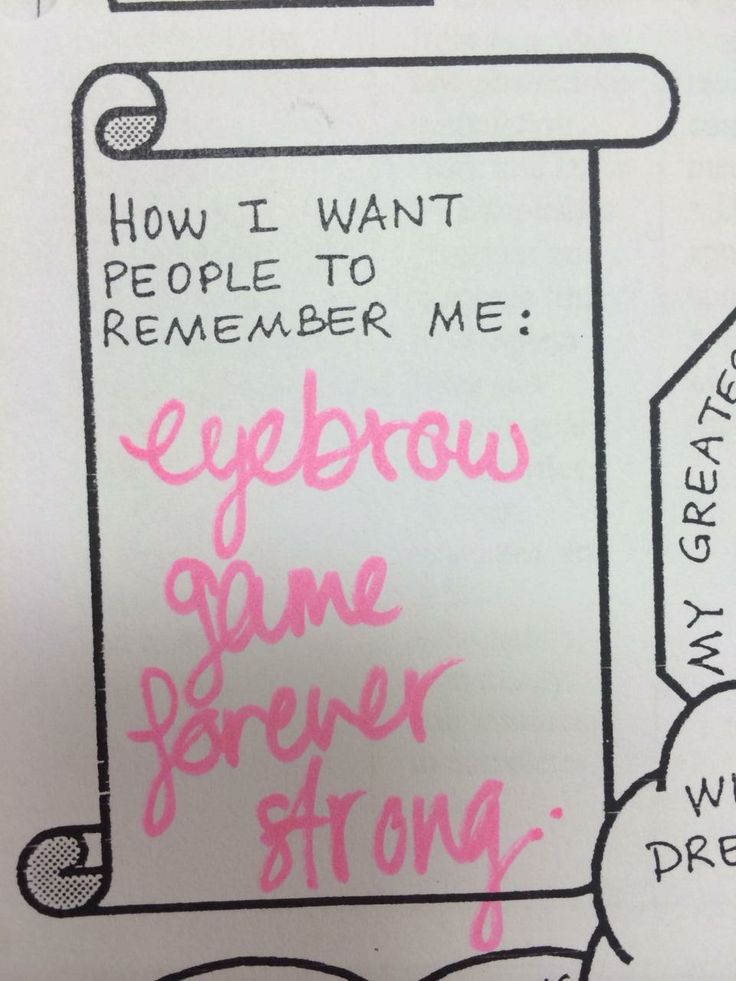 HOW I WANT
PEOPLE TO
REMEMBER ME:
eyebrow
game
forever
strong.
MY